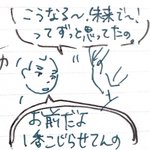 こうなる〜、未来で〜、!
ってずっと思ってたの。
お前だよ
1番こじらせてんの